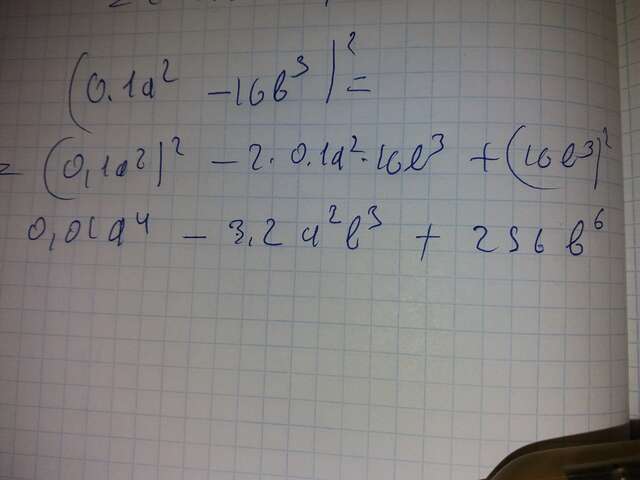 (0,1a² - 16b³)² =
= (0,1a²)² - 2 · 0.1a² · 16b³ + (16b³)²
0,01a⁴ - 3,2a²b³ + 256b⁶